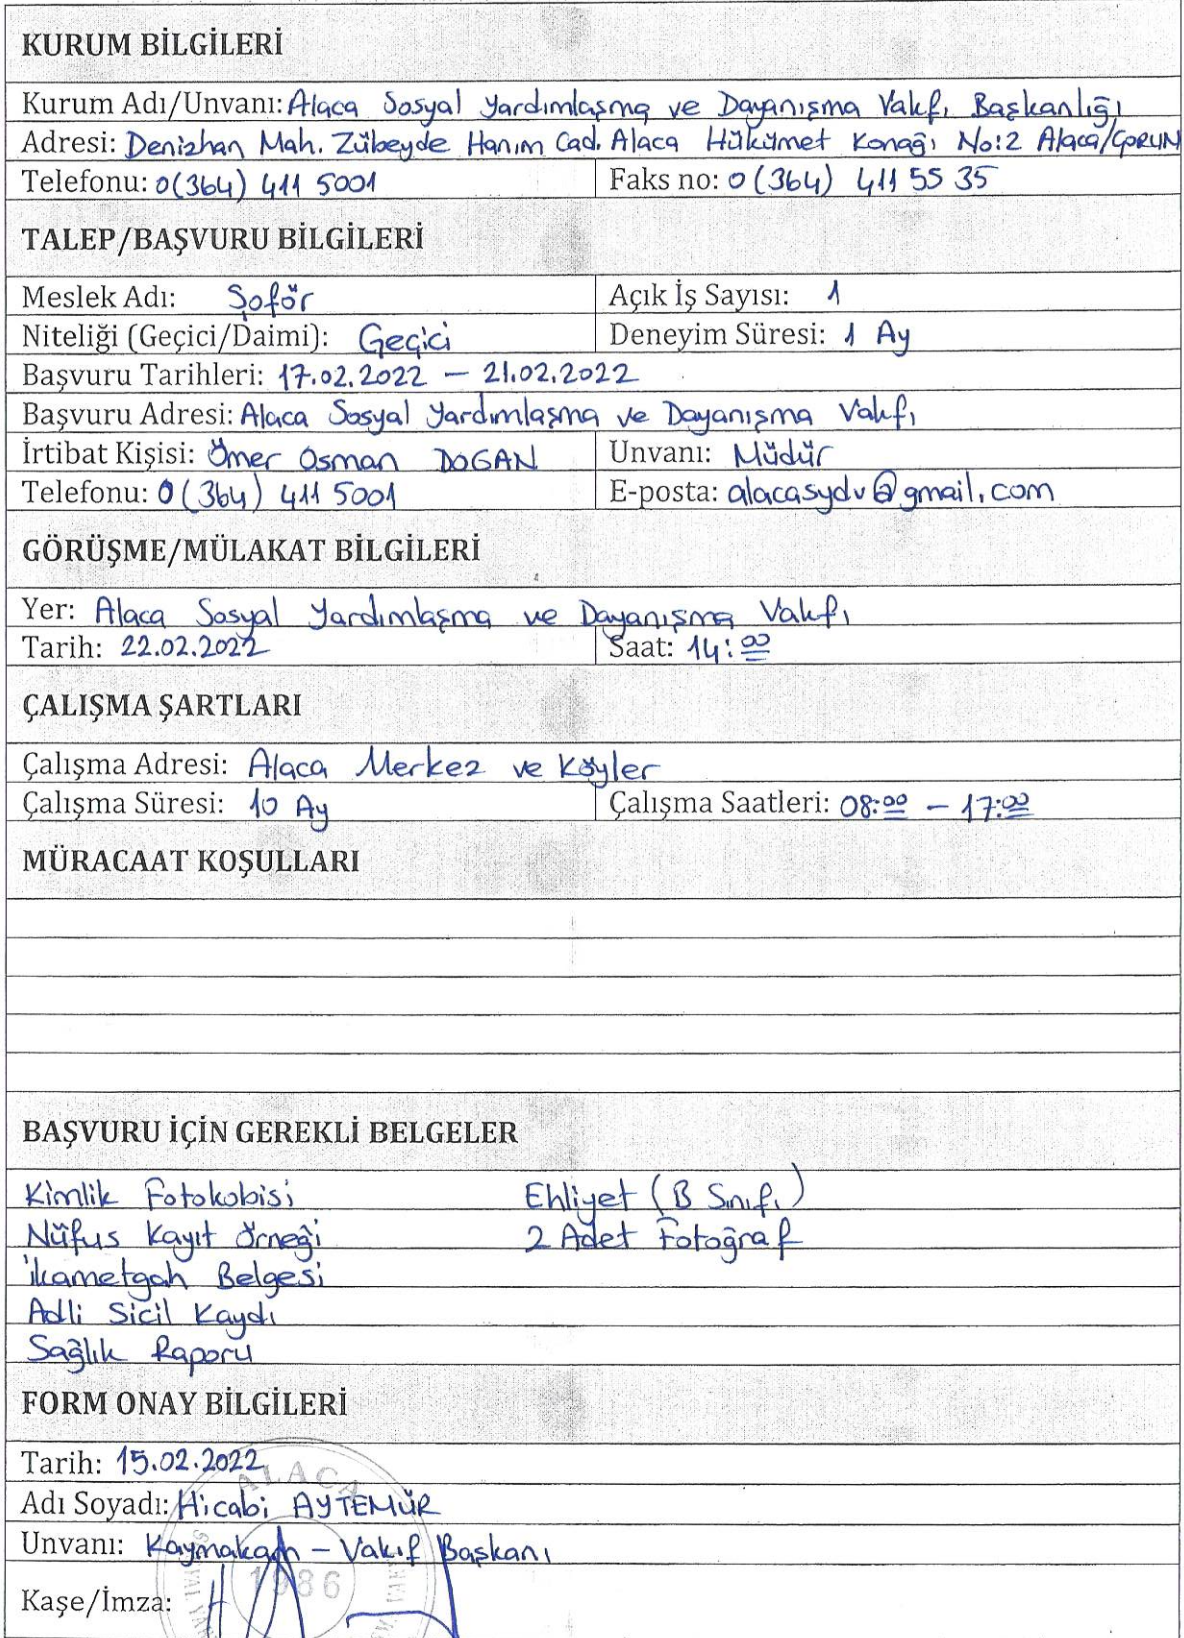 KURUM BİLGİLERİ
Kurum Adı/Unvanı: Alaca Sosyal Yardımlaşma ve Dayanışma Vakfı Başkanlığı
Adresi: Denizhan Mah. Zübeyde Hanım Cad. Alaca Hükümet Konağı No:2 Alaca/ÇORUM
Telefonu: 0(364) 411 5001 Faks no: 0(364) 411 55 35
TALEP/BAŞVURU BİLGİLERİ
Meslek Adı: Şoför Açık İş Sayısı: 1
Niteliği (Geçici/Daimi): Geçici Deneyim Süresi: 1 Ay
Başvuru Tarihleri: 17.02.2022 – 21.02.2022
Başvuru Adresi: Alaca Sosyal Yardımlaşma ve Dayanışma Vakfı
İrtibat Kişisi: Ömer Osman DOĞAN Unvanı: Müdür
Telefonu: 0(364) 411 5001 E-posta: alacasydv@gmail.com
GÖRÜŞME/MÜLAKAT BİLGİLERİ
Yer: Alaca Sosyal Yardımlaşma ve Dayanışma Vakfı
Tarih: 22.02.2022 Saat: 14:00
ÇALIŞMA ŞARTLARI
Çalışma Adresi: Alaca Merkez ve Köyler
Çalışma Süresi: 10 Ay Çalışma Saatleri: 08:00 – 17:00
MÜRACAAT KOŞULLARI
BAŞVURU İÇİN GEREKLİ BELGELER
Kimlik Fotokobisi Ehliyet (B Sınıfı)
Nüfus Kayıt Örneği 2 Adet Fotoğraf
İkametgah Belgesi
Adli Sicil Kaydı
Sağlık Raporu
FORM ONAY BİLGİLERİ
Tarih: 15.02.2022
ALACA
Adı Soyadı: Hicabi AYTEMÜR
Unvanı: Kaymakam – Vakıf Başkanı
1986
Kaşe/İmza: